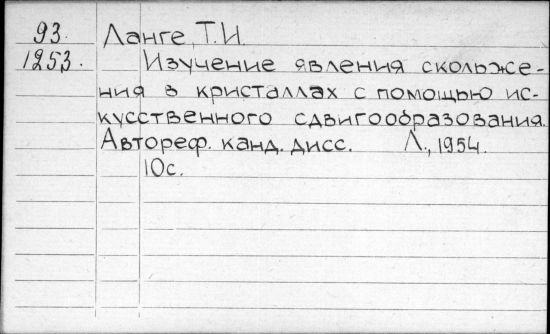 93. Ланге, Т.И.
1253. Изучение явления скольже-
ния в кристаллах с помощью ис-
кусственного сдвигообразования.
Автореф. канд. дисс. Л., 1954.
10с.